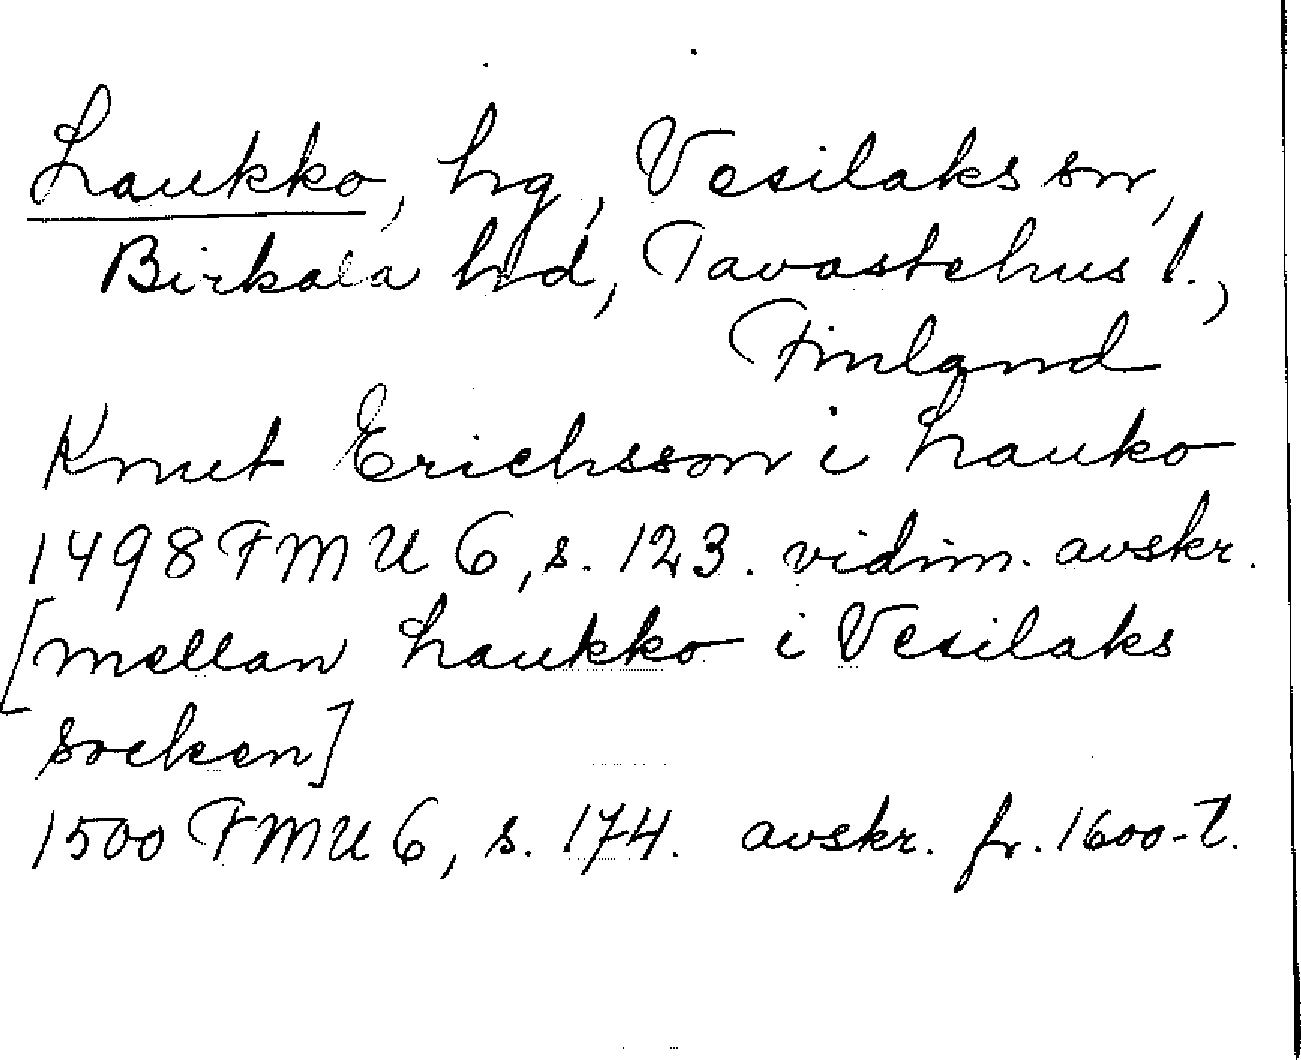 Laukko, hg, Vesilaks sn,
Birkala hd, Tavastehus l.,
Finland
Knut Erichsson i Lauko
1498 FMU 6, s. 123. vidim. avskr.
[mellan Laukko i Vesilaks
socken]
1500 FMU 6, s. 174. avskr. fr. 1600-t.